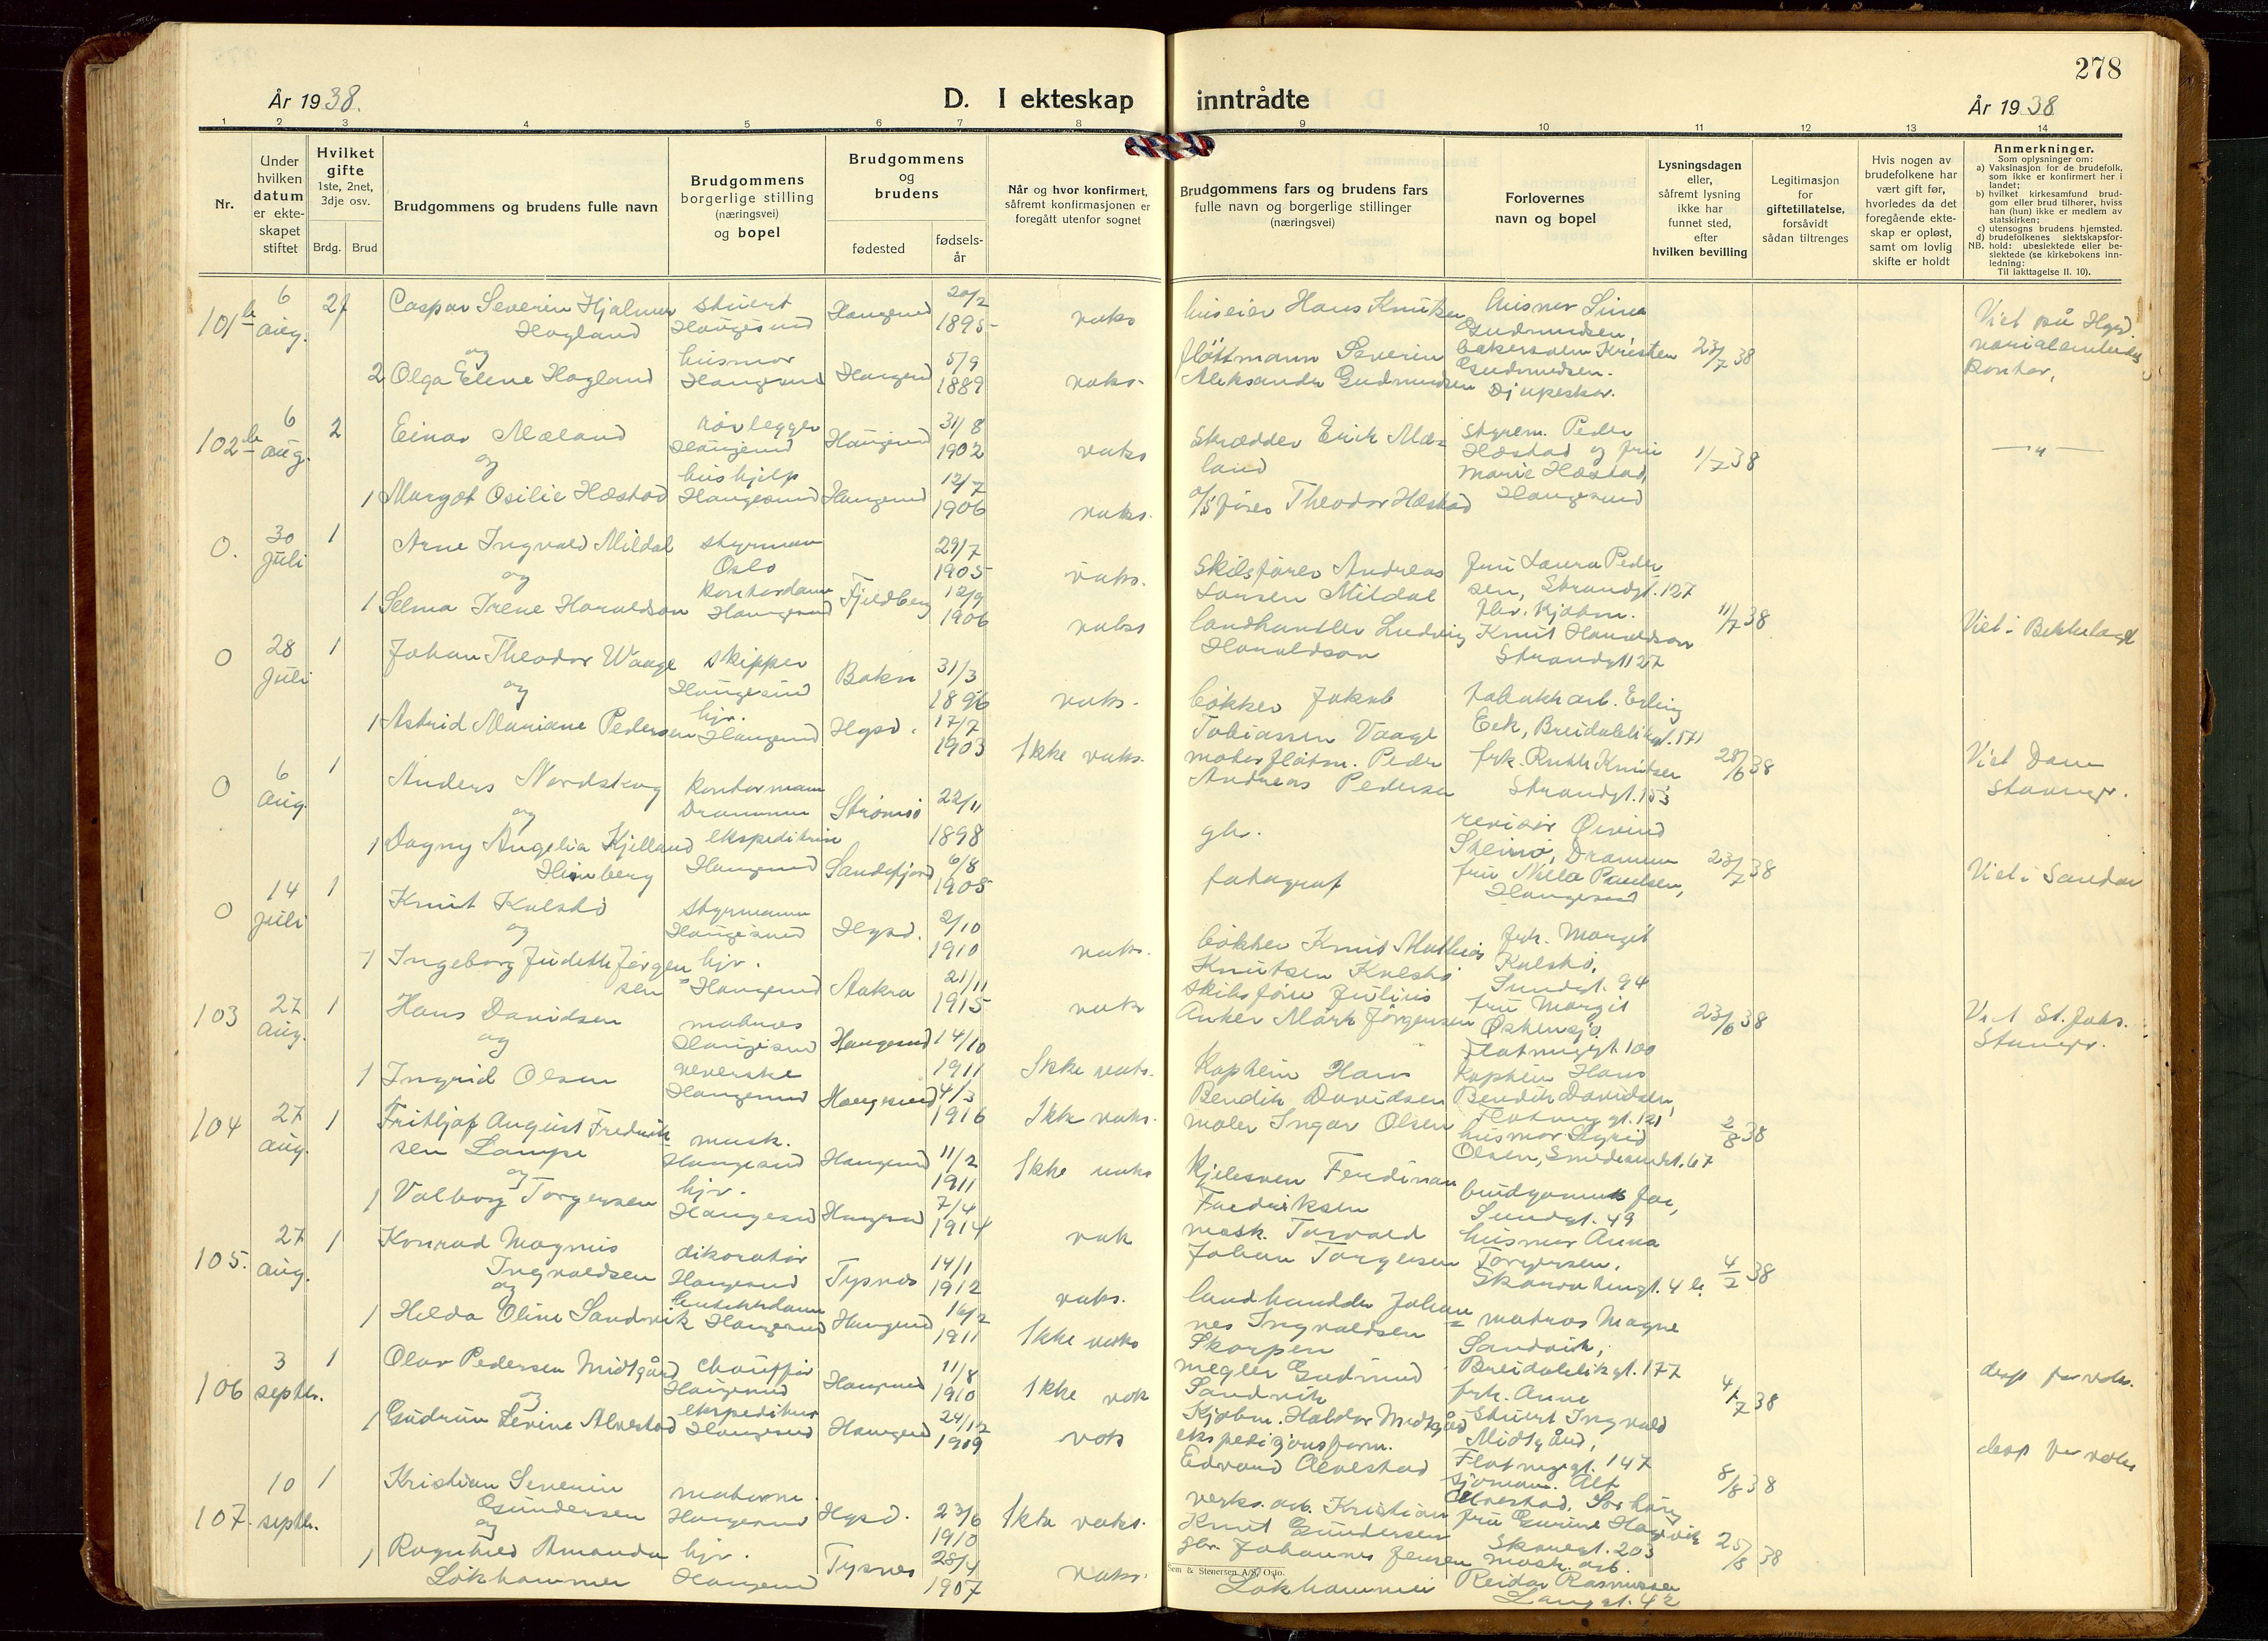 278
År 1938.
D. I ekteskap inntrådte
År 1938
1 2 3 4 5 6 7 8 9 10 11 12 13 14
Nr.
Under hvilken datum er ekteskapet stiftet
Hvilket gifte
1ste, 2net, 3dje osv.
Brdg. Brud
Brudgommens og brudens fulle navn
Brudgommens borgerlige stilling (næringsvei) og bopel
Brudgommens og brudens
fødested
fødselsår
Når og hvor konfirmert, såfremt konfirmasjonen er foregått utenfor sognet
Brudgommens fars og brudens fars fulle navn og borgerlige stillinger (næringsvei)
Forlovernes navn og bopel
Lysningsdagen eller, såfremt lysning ikke har funnet sted, efter hvilken bevilling
Legitimasjon for giftetillatelse, forsåvidt sådan tiltrenges
Hvis nogen av brudefolkene har vært gift før, hvorledes da det foregående ekteskap er opløst, samt om lovlig skifte er holdt
Anmerkninger.
Som oplysninger om:
a) Vaksinasjon for de brudefolk, som ikke er konfirmert her i landet;
b) hvilket kirkesamfund brudgom eller brud tilhører, hviss han (hun) ikke er medlem av statskirken;
c) utensogns brudens hjemsted.
d) brudefolkenes slektskapsforhold: ubeslektede eller beslektede (se kirkebokens innledning:
NB.
Til iakttagelse II. 10).
101 b
6 aug.
2
Caspar Severin Hjalmar
Hogland
stuert
Haugesund
Haugesund
20/2
1895
vaks
huseier Hans Knutsen
husmor Sina
Gudmundsen,
og
2 Olga Elene Hogland
husmor
Haugesund
Haugesund
5/9
1889
vaks.
fløttmann Severin
Aleksander Gudmundsen
bakersvenn Kristen
Gudmundsen.
Djupeskar.
23/7 38
Viet på Hgsd.
kontor,
102 b
6 aug.
2
Einar Mæland
rørlegger
Haugesund
Haugesund
31/8
1902
vaks
Skrædder Erik Mæ=
land
styrm. Peder
Hæstad og fru
Marie Hæstad,
Haugesund
og
1 Margot Osilie Hæstad
hushjelp
Haugesund
Haugesund
12/7
1906
vaks.
Theodor Hæstad
1/7 38
— " —
0.
30 Juli
1
Arne Ingvald Mildal
styrman
Oslo
29/7
1905
vaks.
Skibsfører Andreas
Larsen Mildal
fru Laura Peder
sen, Strandgt. 127
og
1 Selma Irene Haraldson
kontordame
Haugesund
Fjeldberg
12/9
1906
vaks
landhandler Ludvig
Haraldson
Kjøbm.
Knut Haraldson
Strandgt 127
11/7 38
Viet i Bekkelaget
0
28 Juli
1
Johan Theodor Waage
skipper
Haugesund
Bokn
31/3
1896
vaks.
bøkker Jakob
Tobiassen Vaage
fabrikkarb. Erling
Eek, Breidablikgt. 171
og
1 Astrid Mariane Pedersen
hjv.
Haugesund
Hgsd.
17/7
1903
Ikke vaks.
motorfløtm. Peder
Andreas Pedersen
frk. Ruth Knutsen
Strandgt. 153
28/6 38
Viet Dom
Stavngr.
0
6 Aug.
1
Anders Nordskog
kontormann
Drammen
Strømsø
22/11
1898
gb.
revisor Øivind
Steinsø, Drammen
og
1 Dagny Angelia Kjelland
Heinberg
ekspeditrise
Haugesund
Sandefjord
6/8
1905
fotograf
fru Nilla Paulsen,
Haugesund
23/7 38
Viet i Sandar
0
14 juli
1
Knut Kalstø
styrmann
Haugesund
Hgsd.
2/10
1910
vaks.
bøkker Knut Mathias
Knutsen Kalstø
frk. Margit
Kalstø,
Sundgt. 94
og
1 Ingeborg Judette Jørgen
sen
hjv.
Haugesund
Aakra
21/11
1915
vaks
Skibsfører Julius
Anker Mørk Jørgensen
fru Margit
Østensjø
Flotmyrgt. 100
23/6 38
Viet St. Johs.
Stavngr.
103
27 aug.
1
Hans Davidsen
matros
Haugesund
Haugesund
14/10
1911
Ikke vaks.
Kaptein Hans
Bendik Davidsen
Kaptein Hans
Bendik Davidsen,
Flotmyrgt. 121
og
1 Ingrid Olsen
veverske
Haugesund
Haugesund
4/3
1916
Ikke vaks.
maler Ingar Olsen
husmor Sigrid
Olsen, Smedesundet. 67
2/8 38
104
27 aug.
1
Frithjof August Fredrik
sen Lampe
mask.
Haugesund
Haugesund
11/2
1911
Ikke vaks
Kjelesven Ferdinan
Fredriksen
brudgommens far,
Sundgt. 49
og
1 Valborg Torgersen
hjv.
Haugesund
Haugesund
7/4
1914
vak
mask. Torvald
Johan Torgersen
husmor Anna
Torgersen,
4/2 38
105.
27 aug.
1
Konrad Magnus
Ingvaldsen
dikoratør
Haugesund
Tysnes
14/1
1912
vaks.
landhandler Johan=
nes Ingvaldsen
Skorpen
matros Magne
Sandvik,
Breidablikgt. 177
og
1 Helda Oline Sandvik
butikkdame
Haugesund
Haugesund
16/2
1911
Ikke vaks
megler Gudmund
Sandvik
frk. Anne
4/7 38
desp for vaks.
106
3 septbr.
1
Olav Pedersen Midtgård
chauffør
Haugesund
Haugesund
11/8
1910
Ikke vak
Kjøbm. Haldor Midtgård
Stuert Ingvald
Midtgård,
Flotmyrgt. 147
og
1 Gudrun Levine Alvestad
ekspeditrise
Haugesund
Haugesund
24/12
1909
vaks
ekspedisjonsform.
Edvard Alvestad
sjømann Alf
Alvestad, Sørhaug
8/8 38
desp for vaks
107.
10 septbr.
1
Kristian Severin
Gundersen
Haugesund
Hgsd.
23/6
1910
Ikke vaks.
verks. arb. Kristian
Knut Gundersen
fru Gurine Hagevik
Skåregt. 203
og
1 Ragnhild Amanda
Løkhammer
hjv.
Haugesund
Tysnes
28/4
1907
vaks.
gbr. Johannes Jensen
Løkhammer
mask. arb.
Reidar Rasmussen
Langgt. 42
25/8 38
Sem & Stenersen A/S, Oslo.